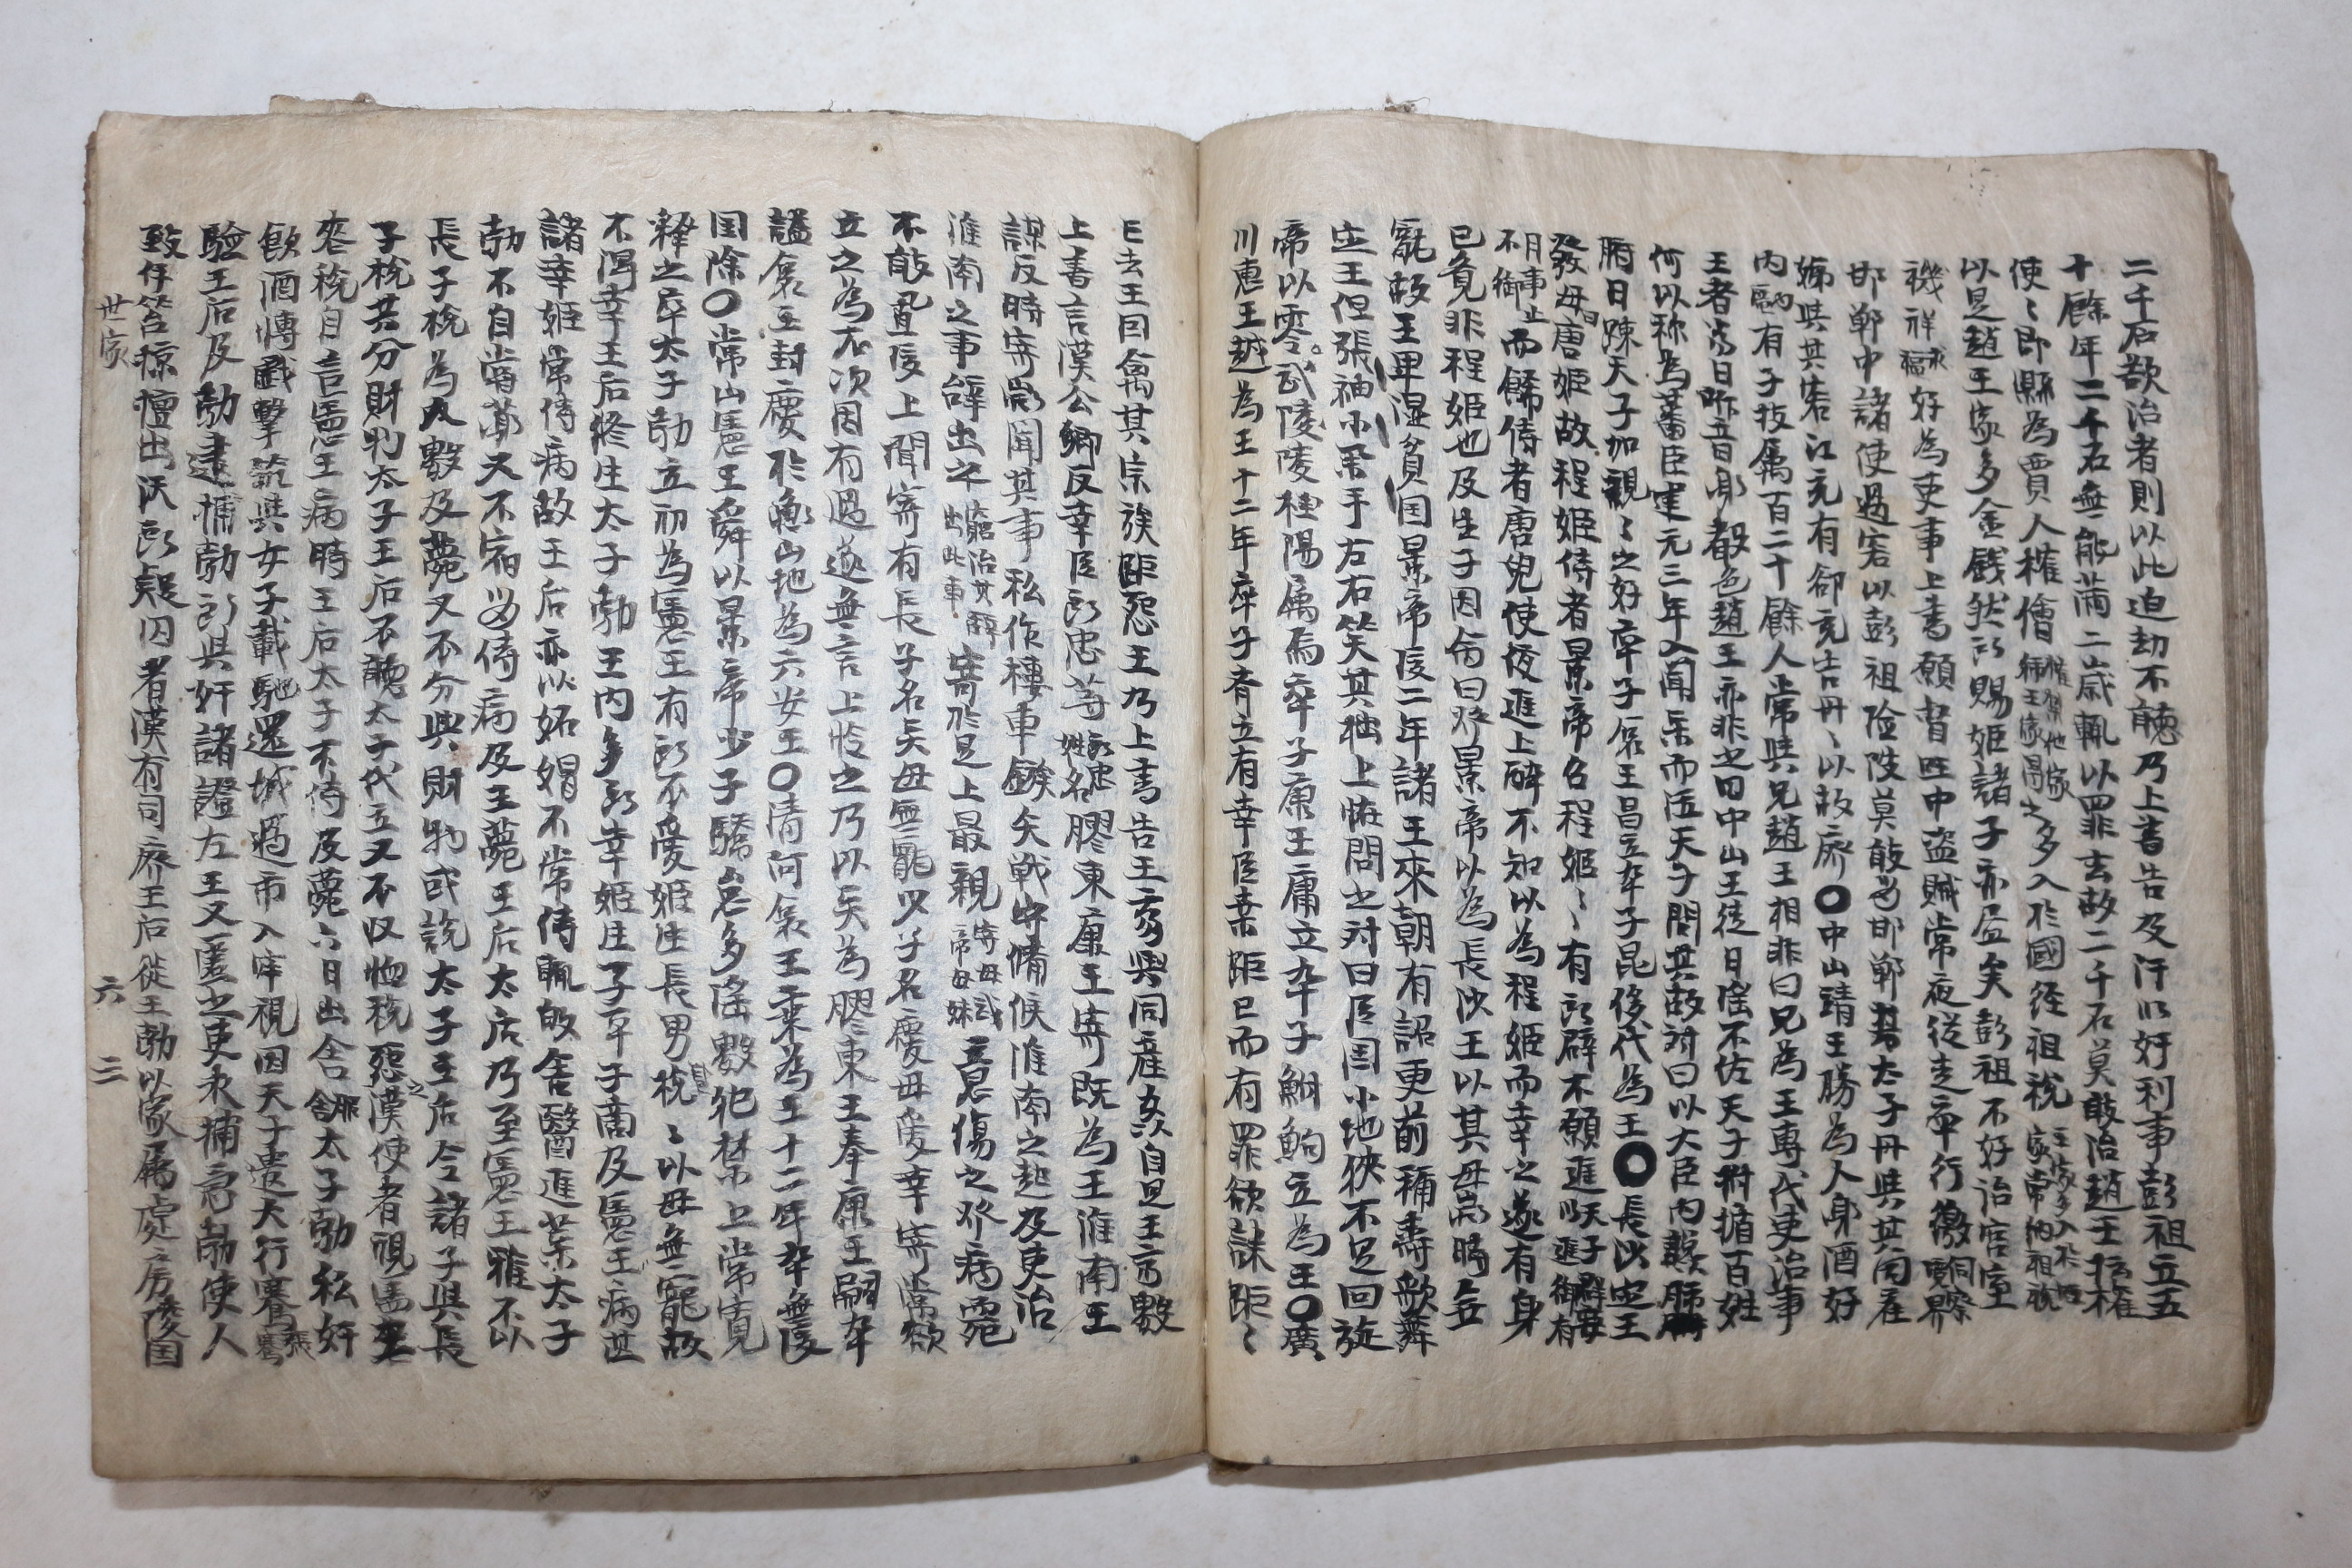 二千石欲治者則以此迫劫不聽乃上書告及汗以奸利事彭祖立五
十餘年二千石無能滿二歲輒以罪去故二千石莫敢治趙王擅權
使〻即縣為賈人榷儈之多入於國經祖稅
以是趙王家多金錢然所賜姬諸子亦盡矣彭祖不好治宮室
禨祥好為吏事上書願督囯中盜賊常夜從走卒行徼
邯鄲中諸使過客以彭祖險陂莫敢留邯鄲其太子丹與其同產
姊與其客江充有郤充告丹〻以故廢〇中山靖王勝為人身酒好
內有子枝屬百二十餘人常與兄趙王相非曰兄為王專代吏治事
王者當日听音身聲色趙王亦非之曰中山王徒日滛不佐天子拊循百姓
何以称為藩臣建元三年入聞樂而泣天子問其故对曰以大臣內讒肺腑
日踈天子加親〻之好卒子哀王昌立卒子昆侈代為王〇長沙定王
發母唐姬故程姬侍者景帝召程姬〻有所辟不願進
而餙侍者唐兒使夜進上醉不知以為程姬而幸之遂有身
已覓非程姬也及生子因命曰發景帝以為長沙王以其母微時無
寵故王卑濕貧国景帝後二年諸王來朝有詔更前稱壽歌舞
定王但張袖小舉手左右笑其拙上怪問之对曰臣国小地狹不足回旋
帝以零武陵陵桂陽属焉卒子康王庸立卒子鮒鮈立為王〇廣
川惠王越為王十二年卒子齊立有幸臣桒距已而有罪欲誅距〻
亡去王因禽其宗族距怨王乃上書告王齊與同產奸自是王齊數
上書言漢公卿及幸臣所忠等膠東康王寄既為王淮南王
謀反時寄微聞其事私作樓車鏃矢戰守備候淮南之起及吏治
淮南之事辭出之寄於是上最親意傷之發病死
不敢置後上聞寄有長子名矣母無寵少子名慶母愛幸寄常欲
立之為不次因有過遂無言上怜之乃以矣為膠東王奉康王嗣卒
謚哀王封慶於衡山地為六安王〇清河哀王乘為王十二年卒無後
国除〇常山憲王舜以景帝少子驕怠多滛數犯禁上常寬
釋之卒太子勃立初為憲王有所不愛姬生長男梲〻以母無寵故
不得幸王后脩生太子勃王内多所幸姬生子平子商及憲王病甚
諸幸姬常侍病故王后亦以妬媢不常侍輒敀舍醫進藥太子
勃不自嘗藥又不宿留侍病及王薨王后太后乃至憲王雅不以
長子梲為人數及薨又不分與財物或說太子王后令諸子與長
子梲共分財物太子王后不聽太子代立又不収恤梲怨漢使者視憲王喪
梲自言憲王病時王后太子不侍及薨六日出舍太子勃私奸
飲酒慱戲擊筑與女子載馳還城過市入牢視囚天子遣大行騫
驗王后及勃逮捕勃所與奸諸證左王又匿之吏求捕急勃使人
致仵笞掠擅出汉所疑囚者漢有司廢王后徙王勃以家属處房陵国
世家
六 三